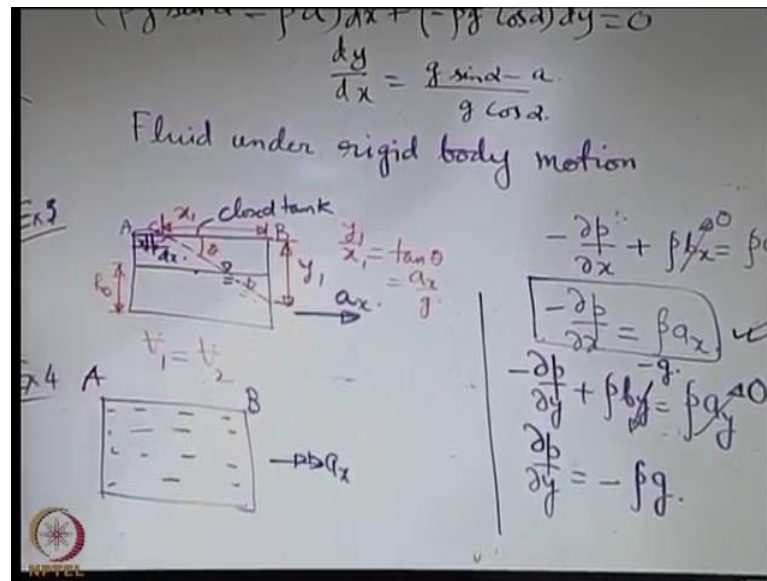 (ρg sinα - ρa)dx + (-ρg cosα)dy = 0
dy/dx = g sinα - a / g cosα.
Fluid under rigid body motion
Ex 3
A x₁ closed tank B
dx. θ
h₀ y₁ aₓ.
y₁/x₁ = tan θ
= aₓ/g
∀₁ = ∀₂
Ex 4 A B
aₓ
-∂p/∂x + ρbₓ = ρ
0
-∂p/∂x = ρaₓ ✓
-g.
-∂p/∂y + ρb_y = ρa_y 0
∂p/∂y = -ρg.
NPTEL